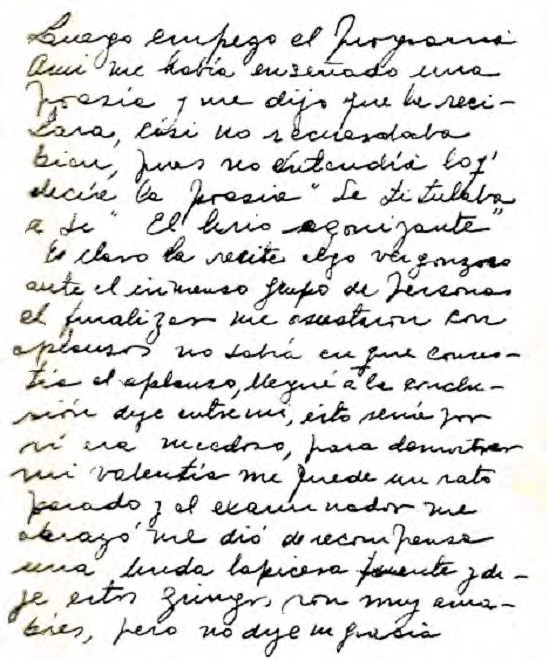 Luego empezo el Programa
Ami me había enseñado una
Poesía y me dijo que la reci-
tara, casi no recuerdaba
bien, pues no entendía loq'
decía la poesia" Se titulaba
a si " El lirio agonizante"
Es claro la recite algo vergonzoso
ante el inmenso grupo de Personas
al finalizar me asustaron con
aplausos no sabía en que consis-
tía el aplauso, llegué a la conclu-
sión dije entre mi, esto sería por
si era miedoso, para demostrar
mi valentía me quede un rato
parado y el examinador me
abrazó me dió de recompensa
una linda lapicera fuente y di-
je estos gringos son muy ama-
bles, pero no dije gracia